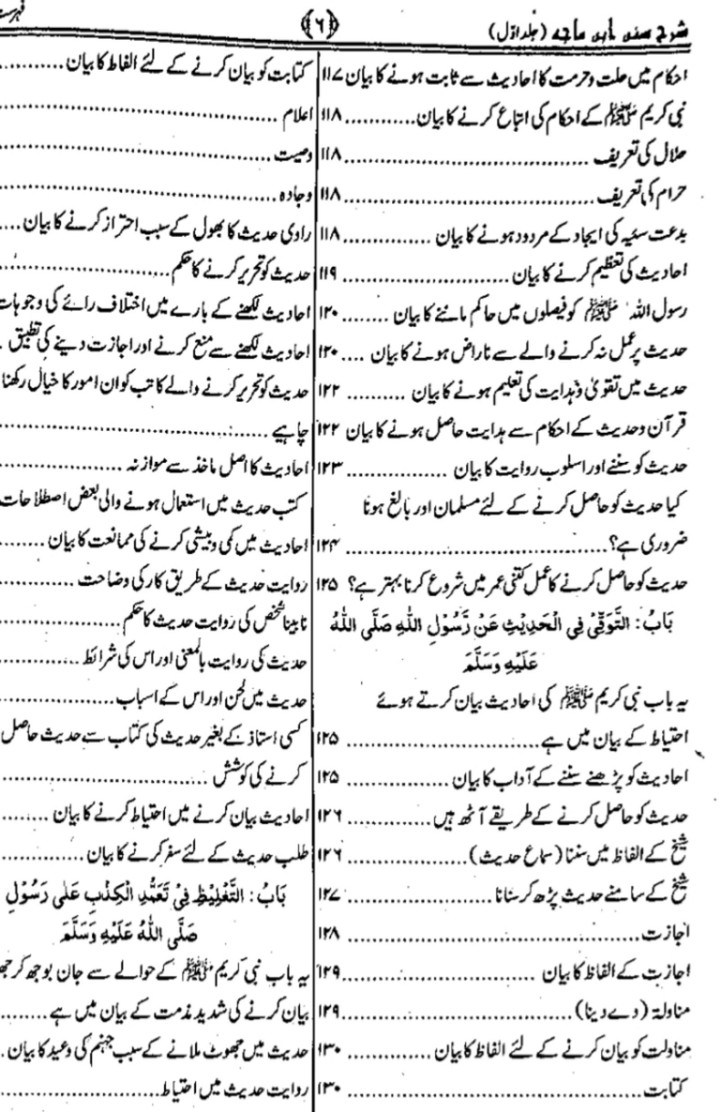 شرح سنن ابن ماجہ (جلد اوّل)
﴿۶﴾
فہرست
احکام میں حلت وحرمت کا احادیث سے ثابت ہونے کا بیان ۱۱۷
نبی کریم ﷺ کے احکام کی اتباع کرنے کا بیان............ ۱۱۸
حلال کی تعریف ........................................ ۱۱۸
حرام کی تعریف........................................ ۱۱۸
بدعت سئیہ کی ایجاد کے مردود ہونے کا بیان ............ ۱۱۸
احادیث کی تعظیم کرنے کا بیان ........................ ۱۱۹
رسول اللہ ﷺ کو فیصلوں میں حاکم ماننے کا بیان ........ ۱۲۰
حدیث پر عمل نہ کرنے والے سے ناراض ہونے کا بیان .... ۱۲۰
حدیث میں تقویٰ وہدایت کی تعلیم ہونے کا بیان .......... ۱۲۲
قرآن وحدیث کے احکام سے ہدایت حاصل ہونے کا بیان ۱۲۲
حدیث کو سننے اور اسلوب روایت کا بیان ................ ۱۲۳
کیا حدیث کو حاصل کرنے کے لئے مسلمان اور بالغ ہونا
ضروری ہے؟........................................ ۱۲۴
حدیث کو حاصل کرنے کا عمل کتنی عمر میں شروع کرنا بہتر ہے؟ ۱۲۵
بَابُ: التَّوَقِّيْ فِي الْحَدِيْثِ عَنْ رَّسُوْلِ اللهِ صَلَّى اللهُ
عَلَيْهِ وَسَلَّمَ
یہ باب نبی کریم ﷺ کی احادیث بیان کرتے ہوئے
احتیاط کے بیان میں ہے................................ ۱۲۵
احادیث کو پڑھنے سننے کے آداب کا بیان................ ۱۲۵
حدیث کو حاصل کرنے کے طریقے آٹھ ہیں .............. ۱۲۶
شیخ کے الفاظ میں سننا (سماع حدیث)................ ۱۲۶
شیخ کے سامنے حدیث پڑھ کر سنانا .................... ۱۲۷
اجازت ............................................ ۱۲۸
اجازت کے الفاظ کا بیان ............................ ۱۲۹
مناولۃ (دے دینا) ................................ ۱۲۹
مناولت کو بیان کرنے کے لئے الفاظ کا بیان ............ ۱۳۰
کتابت............................................ ۱۳۰
کتابت کو بیان کرنے کے لئے الفاظ کا بیان ..........
اعلام ........................................
وصیت ........................................
وجادہ ........................................
راوی حدیث کا بھول کے سبب احتراز کرنے کا بیان ....
حدیث کو تحریر کرنے کا حکم........................
احادیث لکھنے کے بارے میں اختلاف رائے کی وجوہات
احادیث لکھنے سے منع کرنے اور اجازت دینے کی تطبیق .
حدیث کو تحریر کرنے والے کاتب کو ان امور کا خیال رکھنا
چاہیے ........................................
احادیث کا اصل ماخذ سے موازنہ ....................
کتب حدیث میں استعمال ہونے والی بعض اصطلاحات
احادیث میں کمی وبیشی کرنے کی ممانعت کا بیان ........
روایت حدیث کے طریق کار کی وضاحت ..............
نابینا شخص کی روایت حدیث کا حکم....................
حدیث کی روایت بالمعنی اور اس کی شرائط ............
حدیث میں لحن اور اس کے اسباب....................
کسی استاذ کے بغیر حدیث کی کتاب سے حدیث حاصل
کرنے کی کوشش ................................
احادیث بیان کرنے میں احتیاط کرنے کا بیان ........
طلب حدیث کے لئے سفر کرنے کا بیان ..............
بَابُ: التَّغْلِيْظِ فِيْ تَعَمُّدِ الْكِذْبِ عَلٰى رَسُوْلِ
صَلَّى اللهُ عَلَيْهِ وَسَلَّمَ
یہ باب نبی کریم ﷺ کے حوالے سے جان بوجھ کر
بیان کرنے کی شدید مذمت کے بیان میں ہے ........
حدیث میں جھوٹ ملانے کے سبب جہنم کی وعید کا بیان .
روایت حدیث میں احتیاط........................